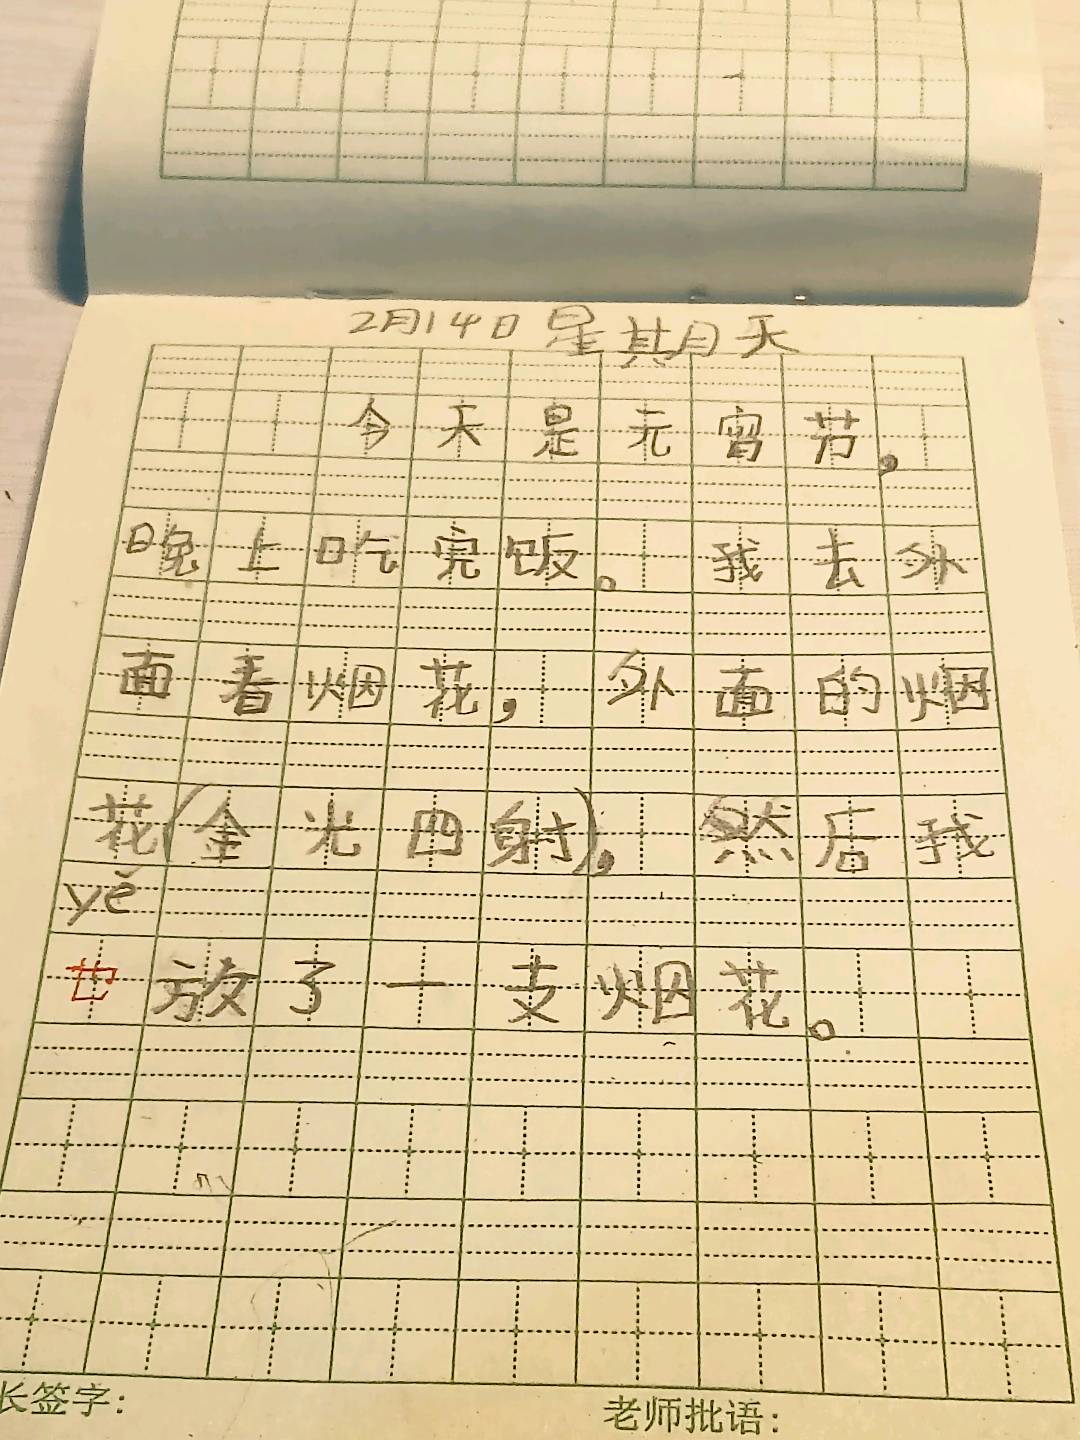 2月14日 星期天
今天是元宵节，
晚上吃完饭。我去外
面看烟花，外面的烟
花(金光四射)，然后我
yě
也放了一支烟花。
长签字：
老师批语：